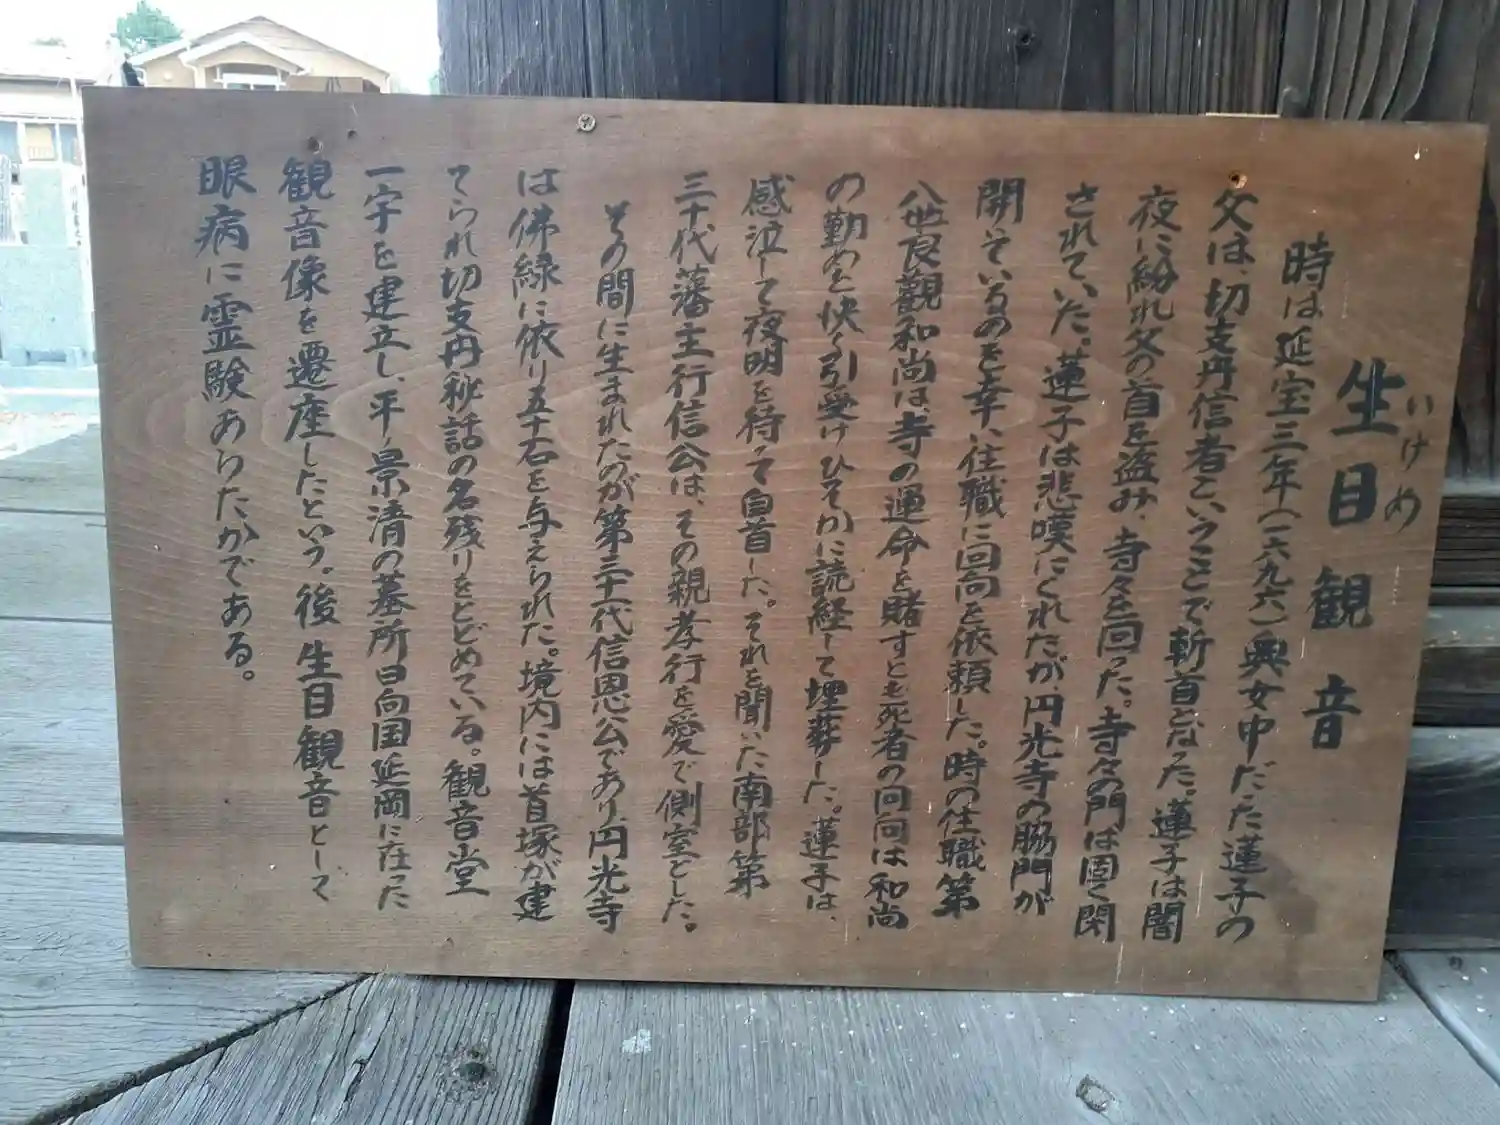 生目観音
いけめ
時は延宝三年(一六九六)奥女中だった蓮子の
父は、切支丹信者ということで斬首となった。蓮子は闇
夜に紛れ父の首を盗み、寺々を回った。寺々の門は固く閉
されていた。蓮子は悲嘆にくれたが、円光寺の脇門が
開いているのを幸に住職に回向を依頼した。時の住職第
八世良觀和尚は、寺の運命を賭すとも死者の回向は和尚
の勤めと快く引受けひそかに読経して埋葬した。蓮子は、
感泣して夜明を待って自首した。それを聞いた南部第
三十代藩主行信公は、その親孝行を愛で側室とした。
その間に生まれたのが第三十一代信恩公であり、円光寺
は佛縁に依り五十石を与えられた。境内には首塚が建
てられ切支丹秘話の名残りをとどめている。観音堂
一宇を建立し、平ノ景清の墓所日向国延岡に在った
観音像を遷座したという。後生目観音として
眼病に霊験あらたかである。